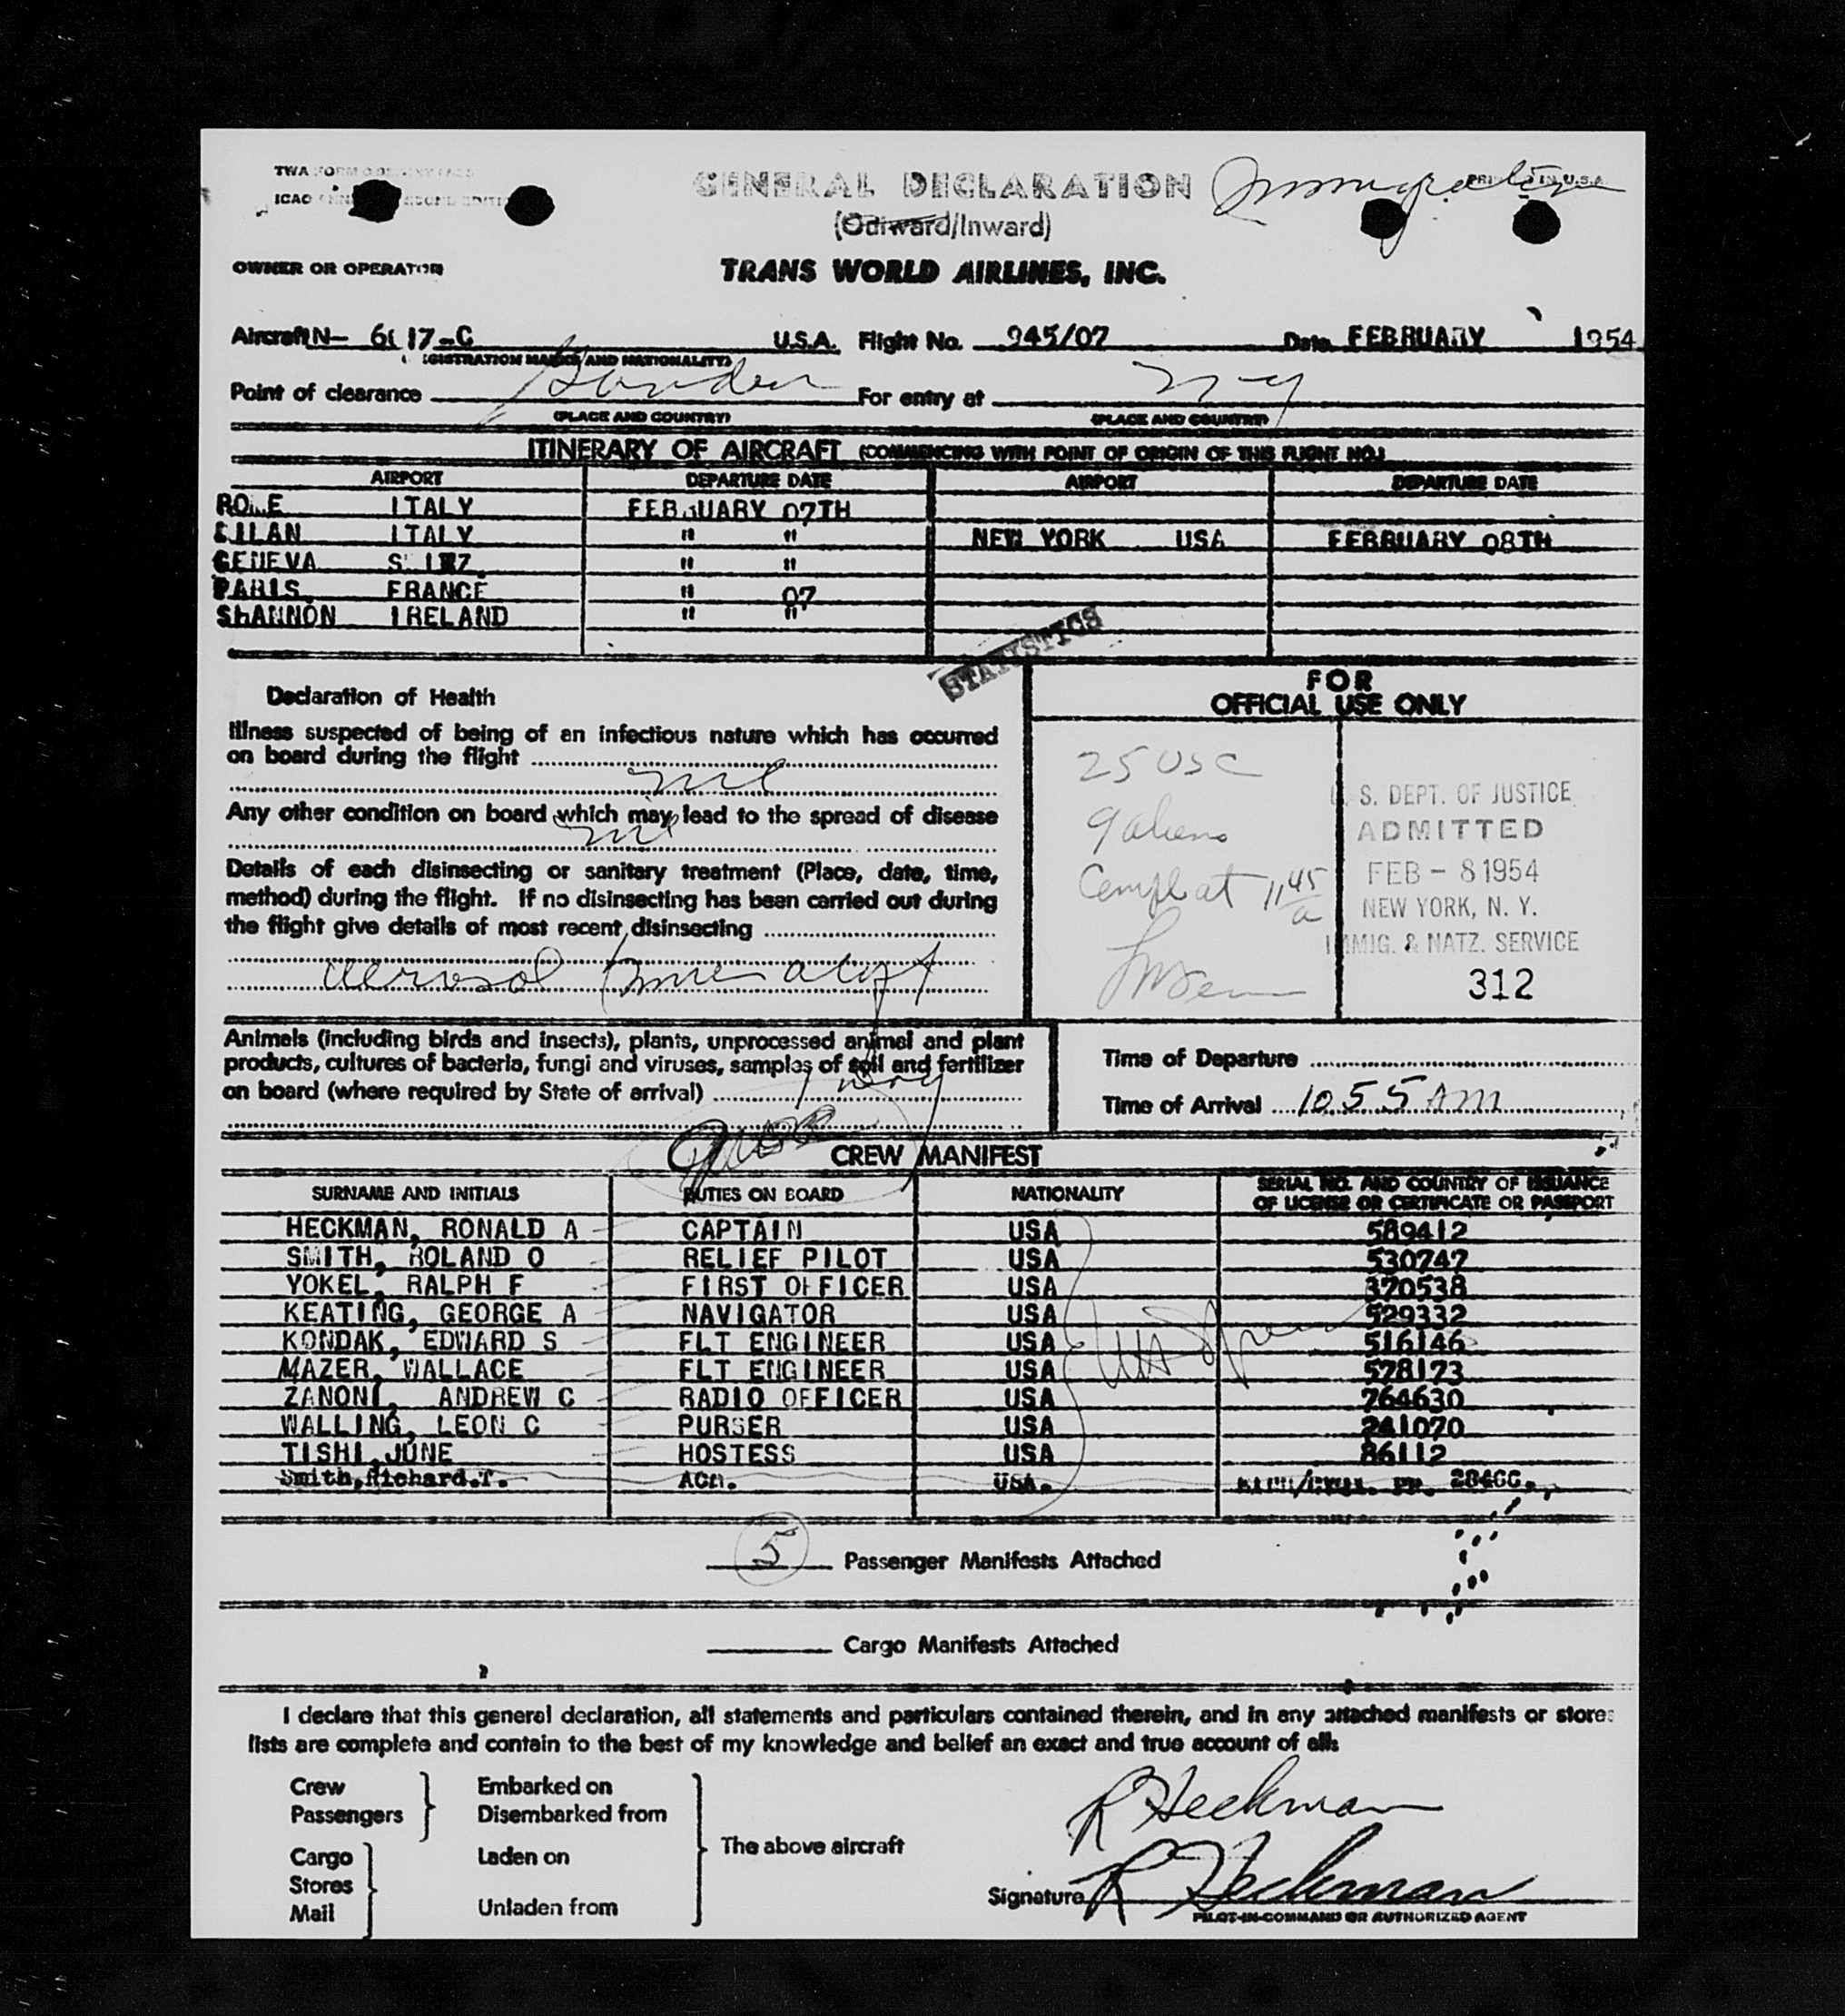 TWA FORM
ICAO SECOND EDITION
GENERAL DECLARATION
Immigration
PRINTED IN U.S.A.
(Outward/Inward)
OWNER OR OPERATOR
TRANS WORLD AIRLINES, INC.
Aircraft N- 6017-C U.S.A. Flight No. 945/07 Date FEBRUARY 1954
(REGISTRATION MARKS AND NATIONALITY)
Point of clearance For entry at NY
(PLACE AND COUNTRY) (PLACE AND COUNTRY)
ITINERARY OF AIRCRAFT (COMMENCING WITH POINT OF ORIGIN OF THIS FLIGHT NO.)
AIRPORT DEPARTURE DATE AIRPORT DEPARTURE DATE
ROME ITALY FEBRUARY 07TH
MILAN ITALY " " NEW YORK USA FEBRUARY 08TH
GENEVA SWITZ. " "
PARIS, FRANCE " 07
SHANNON IRELAND " "
STATISTICS
Declaration of Health
Illness suspected of being of an infectious nature which has occurred
on board during the flight
nil
Any other condition on board which may lead to the spread of disease
nil
Details of each disinsecting or sanitary treatment (Place, date, time,
method) during the flight. If no disinsecting has been carried out during
the flight give details of most recent disinsecting
aerosol
FOR
OFFICIAL USE ONLY
25 USC
9 aliens
Compl at 11 45 a
U. S. DEPT. OF JUSTICE
ADMITTED
FEB - 8 1954
NEW YORK, N. Y.
IMMIG. & NATZ. SERVICE
312
Animals (including birds and insects), plants, unprocessed animal and plant
products, cultures of bacteria, fungi and viruses, samples of soil and fertilizer
on board (where required by State of arrival)
Time of Departure
Time of Arrival 1055 AM
CREW MANIFEST
SURNAME AND INITIALS DUTIES ON BOARD NATIONALITY SERIAL NO. AND COUNTRY OF ISSUANCE
OF LICENSE OR CERTIFICATE OR PASSPORT
HECKMAN, RONALD A CAPTAIN USA 589412
SMITH, ROLAND O RELIEF PILOT USA 530747
YOKEL, RALPH F FIRST OFFICER USA 370538
KEATING, GEORGE A NAVIGATOR USA 529332
KONDAK, EDWARD S FLT ENGINEER USA 516146
MAZER, WALLACE FLT ENGINEER USA 578173
ZANONI, ANDREW C RADIO OFFICER USA 764630
WALLING, LEON C PURSER USA 241070
TISHI, JUNE HOSTESS USA 86112
Smith, Richard.T. ACM. USA.
5 Passenger Manifests Attached
Cargo Manifests Attached
I declare that this general declaration, all statements and particulars contained therein, and in any attached manifests or stores
lists are complete and contain to the best of my knowledge and belief an exact and true account of all:
Crew Embarked on
Passengers Disembarked from
The above aircraft
Cargo Laden on
Stores
Mail Unladen from
R Heckman
Signature R Heckman
PILOT-IN-COMMAND OR AUTHORIZED AGENT